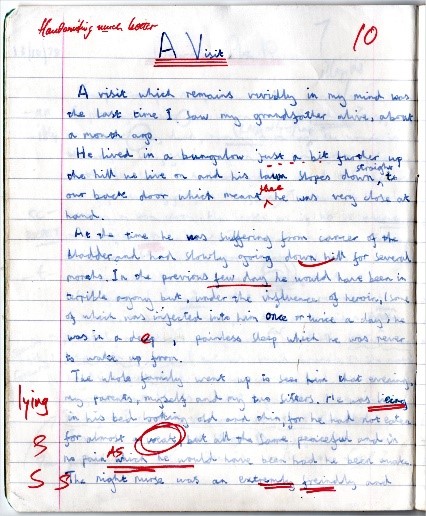 Handwriting much better
10
A Visit.
A visit which remains vividly in my mind was
the last time I saw my grandfather alive, about
a month ago.
He lived in a bungalow just a bit further up
straight
the hill we live on and his lawn slopes down, to
our back door which meant that he was very close at
hand.
At the time he was suffering from cancer of the
bladder and had slowly going down hill for several
months. In the previous few day he would have been in
terrible agony but, under the influence of heroin, (some
of which was injected into him once or twice a day) he
was in a deep, painless sleep which he was never
to wake up from.
The whole family went up to see him that evening,
my parents, myself and my two sisters. He was
lying
in his bed looking old and thin, for he had not eaten
for almost a weak but all the same peaceful and in
S
AS
no pain which he would have been had he been awake.
S S
The night nurse was an extremly freindly and